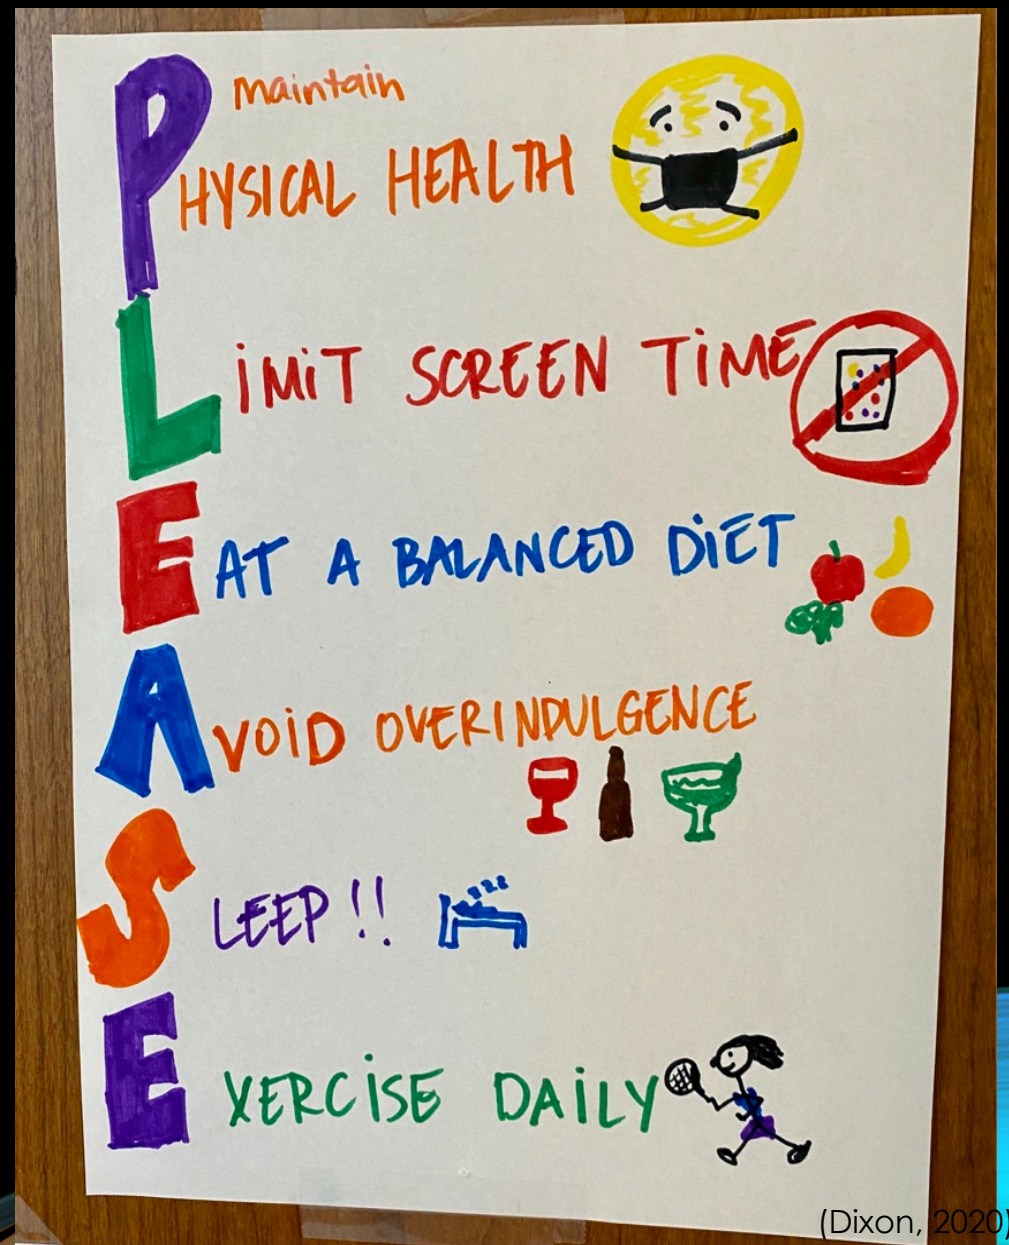 maintain
PHYSICAL HEALTH
LiMiT SCREEN TiME
EAT A BALANCED DiET
AVOiD OVERINDULGENCE
SLEEP!!
zzz
EXERCiSE DAiLY
(Dixon, 2020)